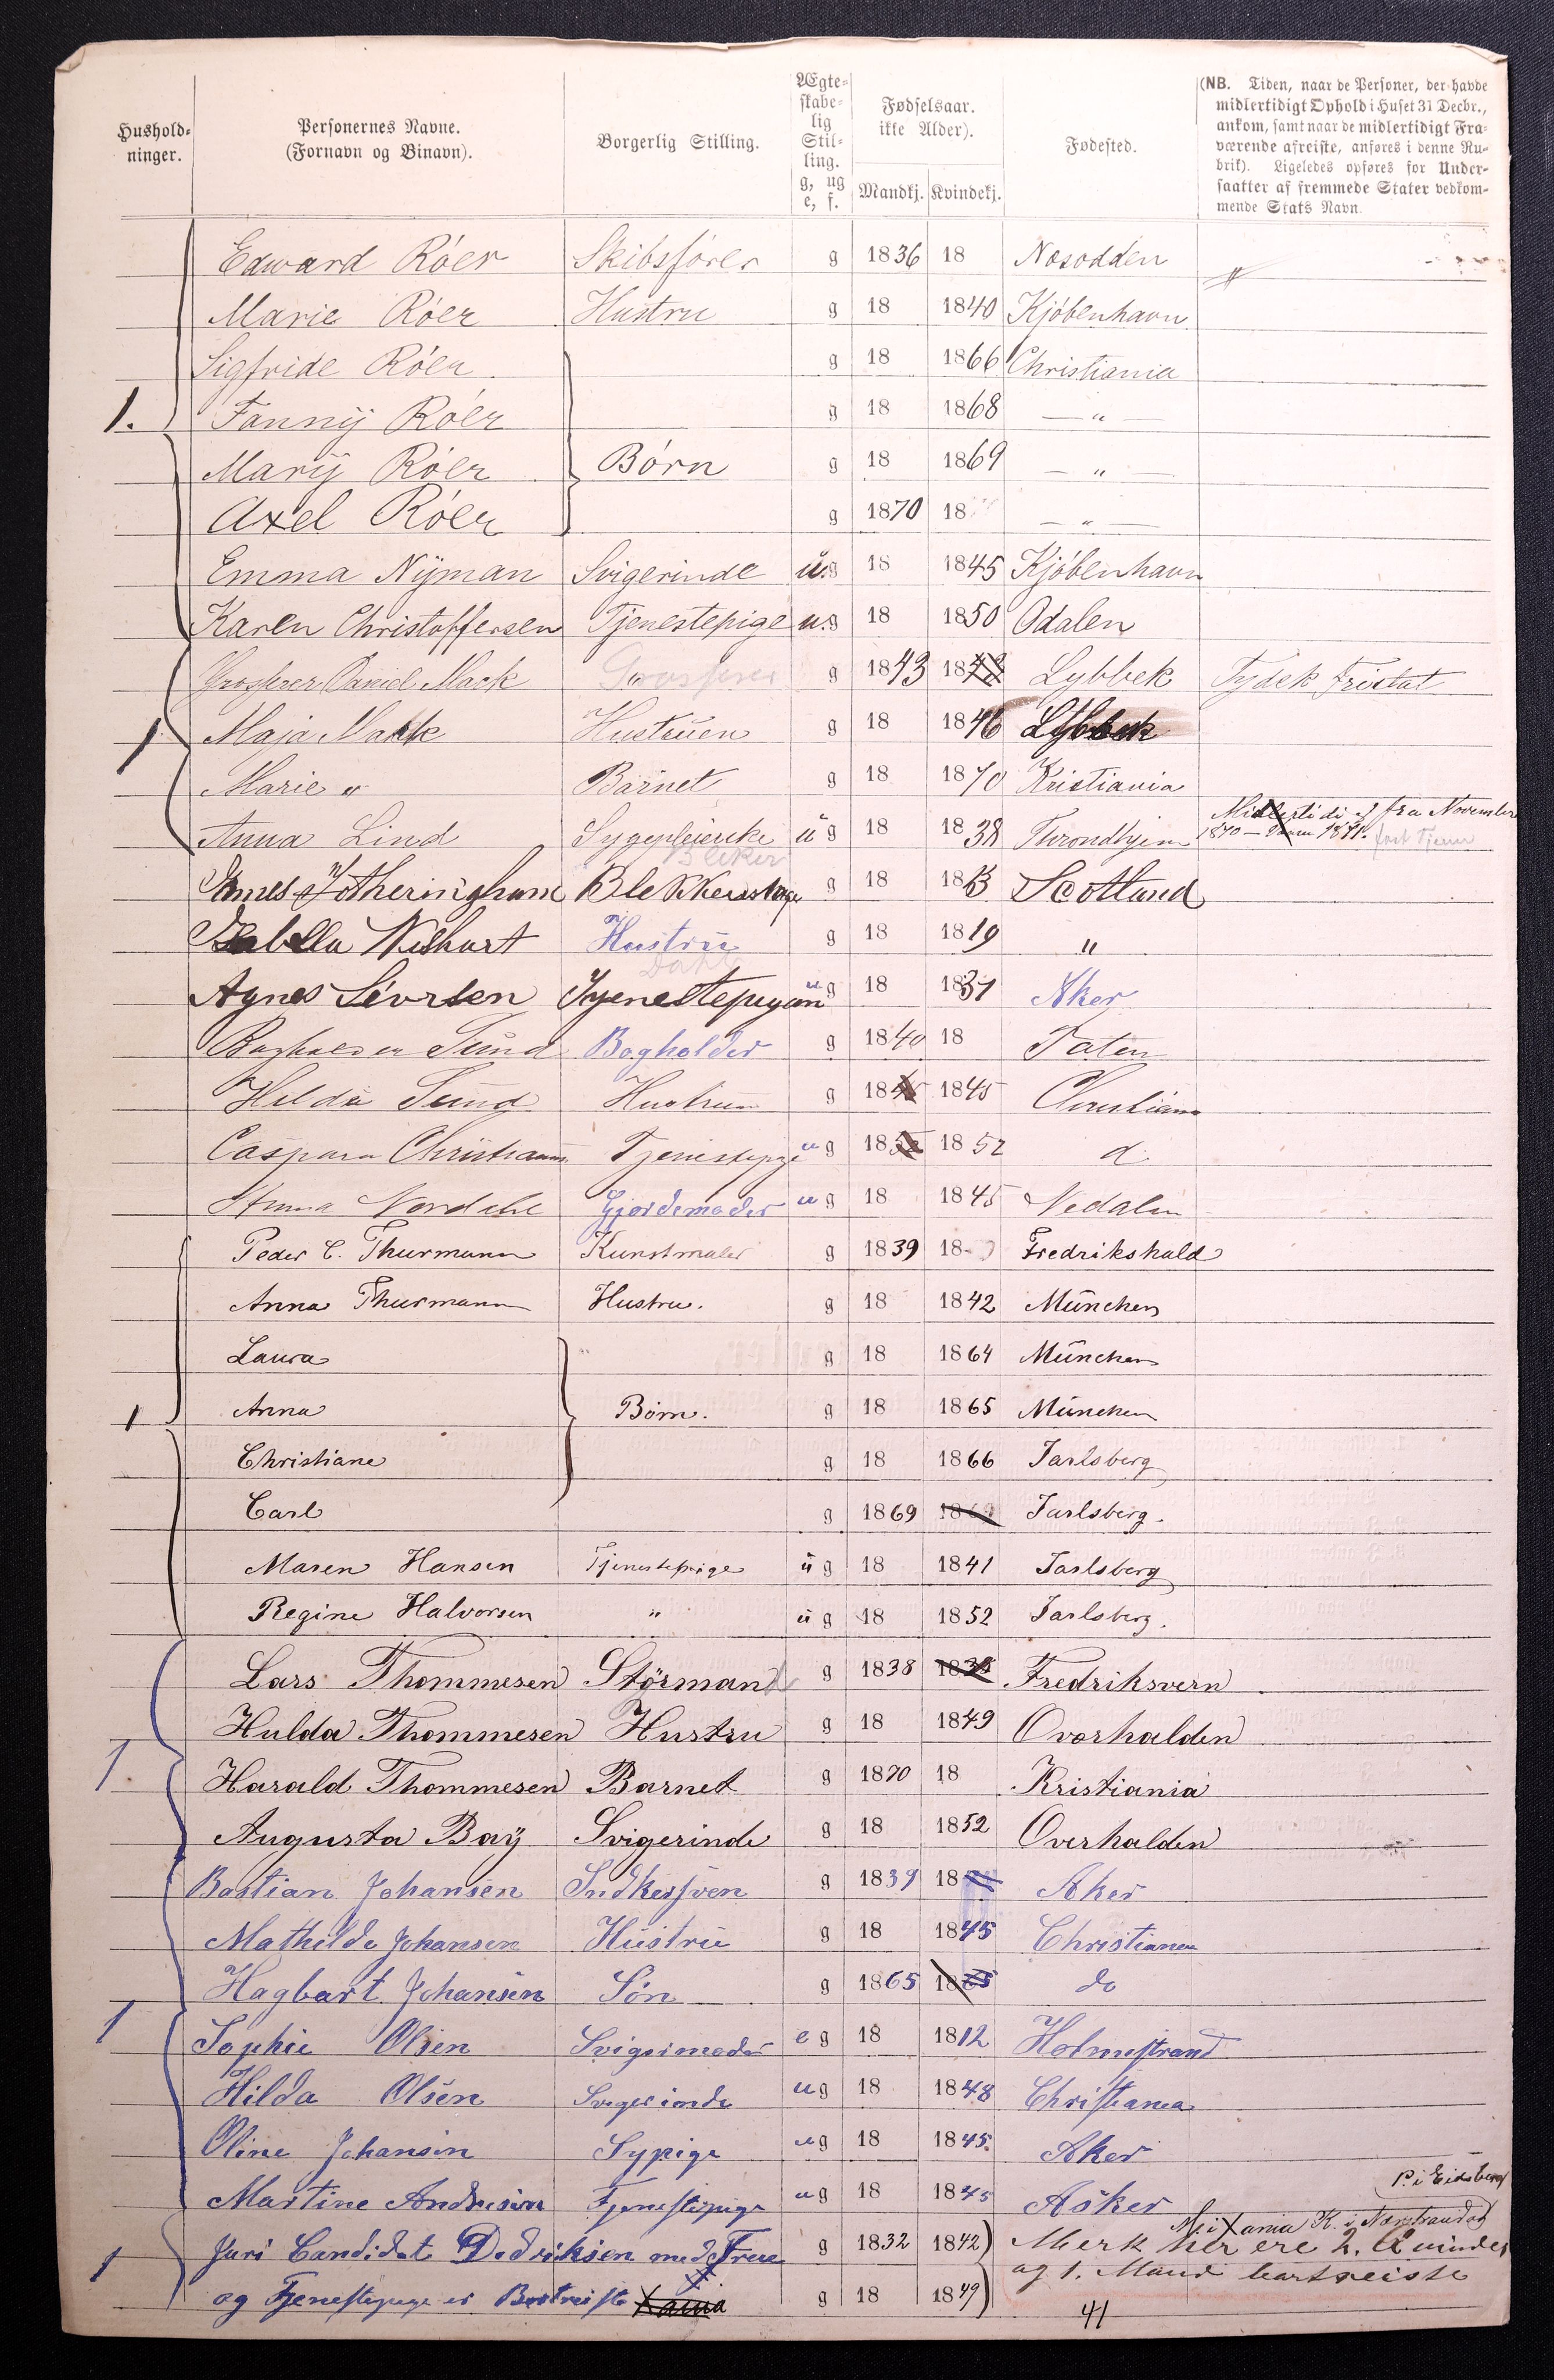 Hushold-
ninger.
Personernes Navne.
(Fornavn og Binavn).
Borgerlig Stilling.
Ægte-
skabe-
lig
Stil-
ling.
g, ug
e, f.
Fødselsaar.
ikke Alder).
Mandkj. Kvindekj.
Fødested.
(NB. Tiden, naar de Personer, der havde
midlertidigt Ophold i Huset 31 Decbr.,
ankom, samt naar de midlertidigt Fra-
værende afreiste, anføres i denne Ru-
brik). Ligeledes opføres for Under-
saatter af fremmede Stater vedkom-
mende Stats Navn.
Edward Róer Skibsfórer g 1836 18 Nosodden
Marie Róer Hustru g 18 1840 Kjóbenhavn
Sigfride Róer g 18 1866 Christiania
1. Fannÿ Róer g 18 1868 — " —
Marÿ Róer Bórn g 18 1869 — " —
Axel Róer g 1870 18 — " —
Emma Nÿman Svigerinde u.g 18 1845 Kjóbenhavn
Karen Christoffersen Tjenestepige u.g 18 1850 Odalen
Grosserer Daniel Mack Grosserer g 1843 18 Lybbek Tydsk Fristat
1 Maja Mack Hustruen g 18 1846 Lybbek
Marie " Barnet g 18 1870 Kristiania
Anna Lind ug 18 1838 Throndhjem Midlertidig fra November
1870 — 1871.
g 18 18 Scotland
Hustru g 18 1819 "
Agnes Sivrsen Tjenestepigen ug 18 1851 Aker
Bogholder Sund Bogholder g 1840 18 Toten
Hilda Sund Hustru g 18 1845 Christiania
Caspara Tjenestepige ug 18 1852 d
Anna Nordahl Gjordemoder ug 18 1845 Nedalen
Peder C. Thurmann Kunstmaler g 1839 18 Fredrikshald
Anna Thurmann Hustru. g 18 1842 München
Laura g 18 1864 München
1 Anna Børn. g 18 1865 München
Christiane g 18 1866 Jarlsberg
Carl g 1869 18 Jarlsberg.
Maren Hansen Tjenestepige ug 18 1841 Jarlsberg
Regine Halvorsen " ug 18 1852 Jarlsberg.
Lars Thommesen Störmand g 1838 1838 Fredriksvern
Hulda Thommesen Hustru g 18 1849 Overhalden
1 Harald Thommesen Barnet g 1870 18 Kristiania
Augusta Baÿ Svigerinde g 18 1852 Overhalden
Bastian Johansen Snedkersven g 1839 18 Aker
Mathilde Johansen Hustru g 18 1845 Christiania
Hagbart Johansen Són g 1865 1865 do
1 Sophie Olsen Svigermoder eg 18 1812 Holmestrand
Hilda Olsen Svigerinde ug 18 1848 Christiania
Oline Johansen Sypige ug 18 1845. Aker
Martine Andresen Tjenestepige ug 18 1845 Asker P. i Eidsberg
M. i Xania K. i
1 Juri Candidat Dedriksen med Frue g 1832 1842) Merk her ere 2. Qvinder
og Tjenestepige er Bortreiste Xania g 18 1849) og 1. Mand bortreiste
41